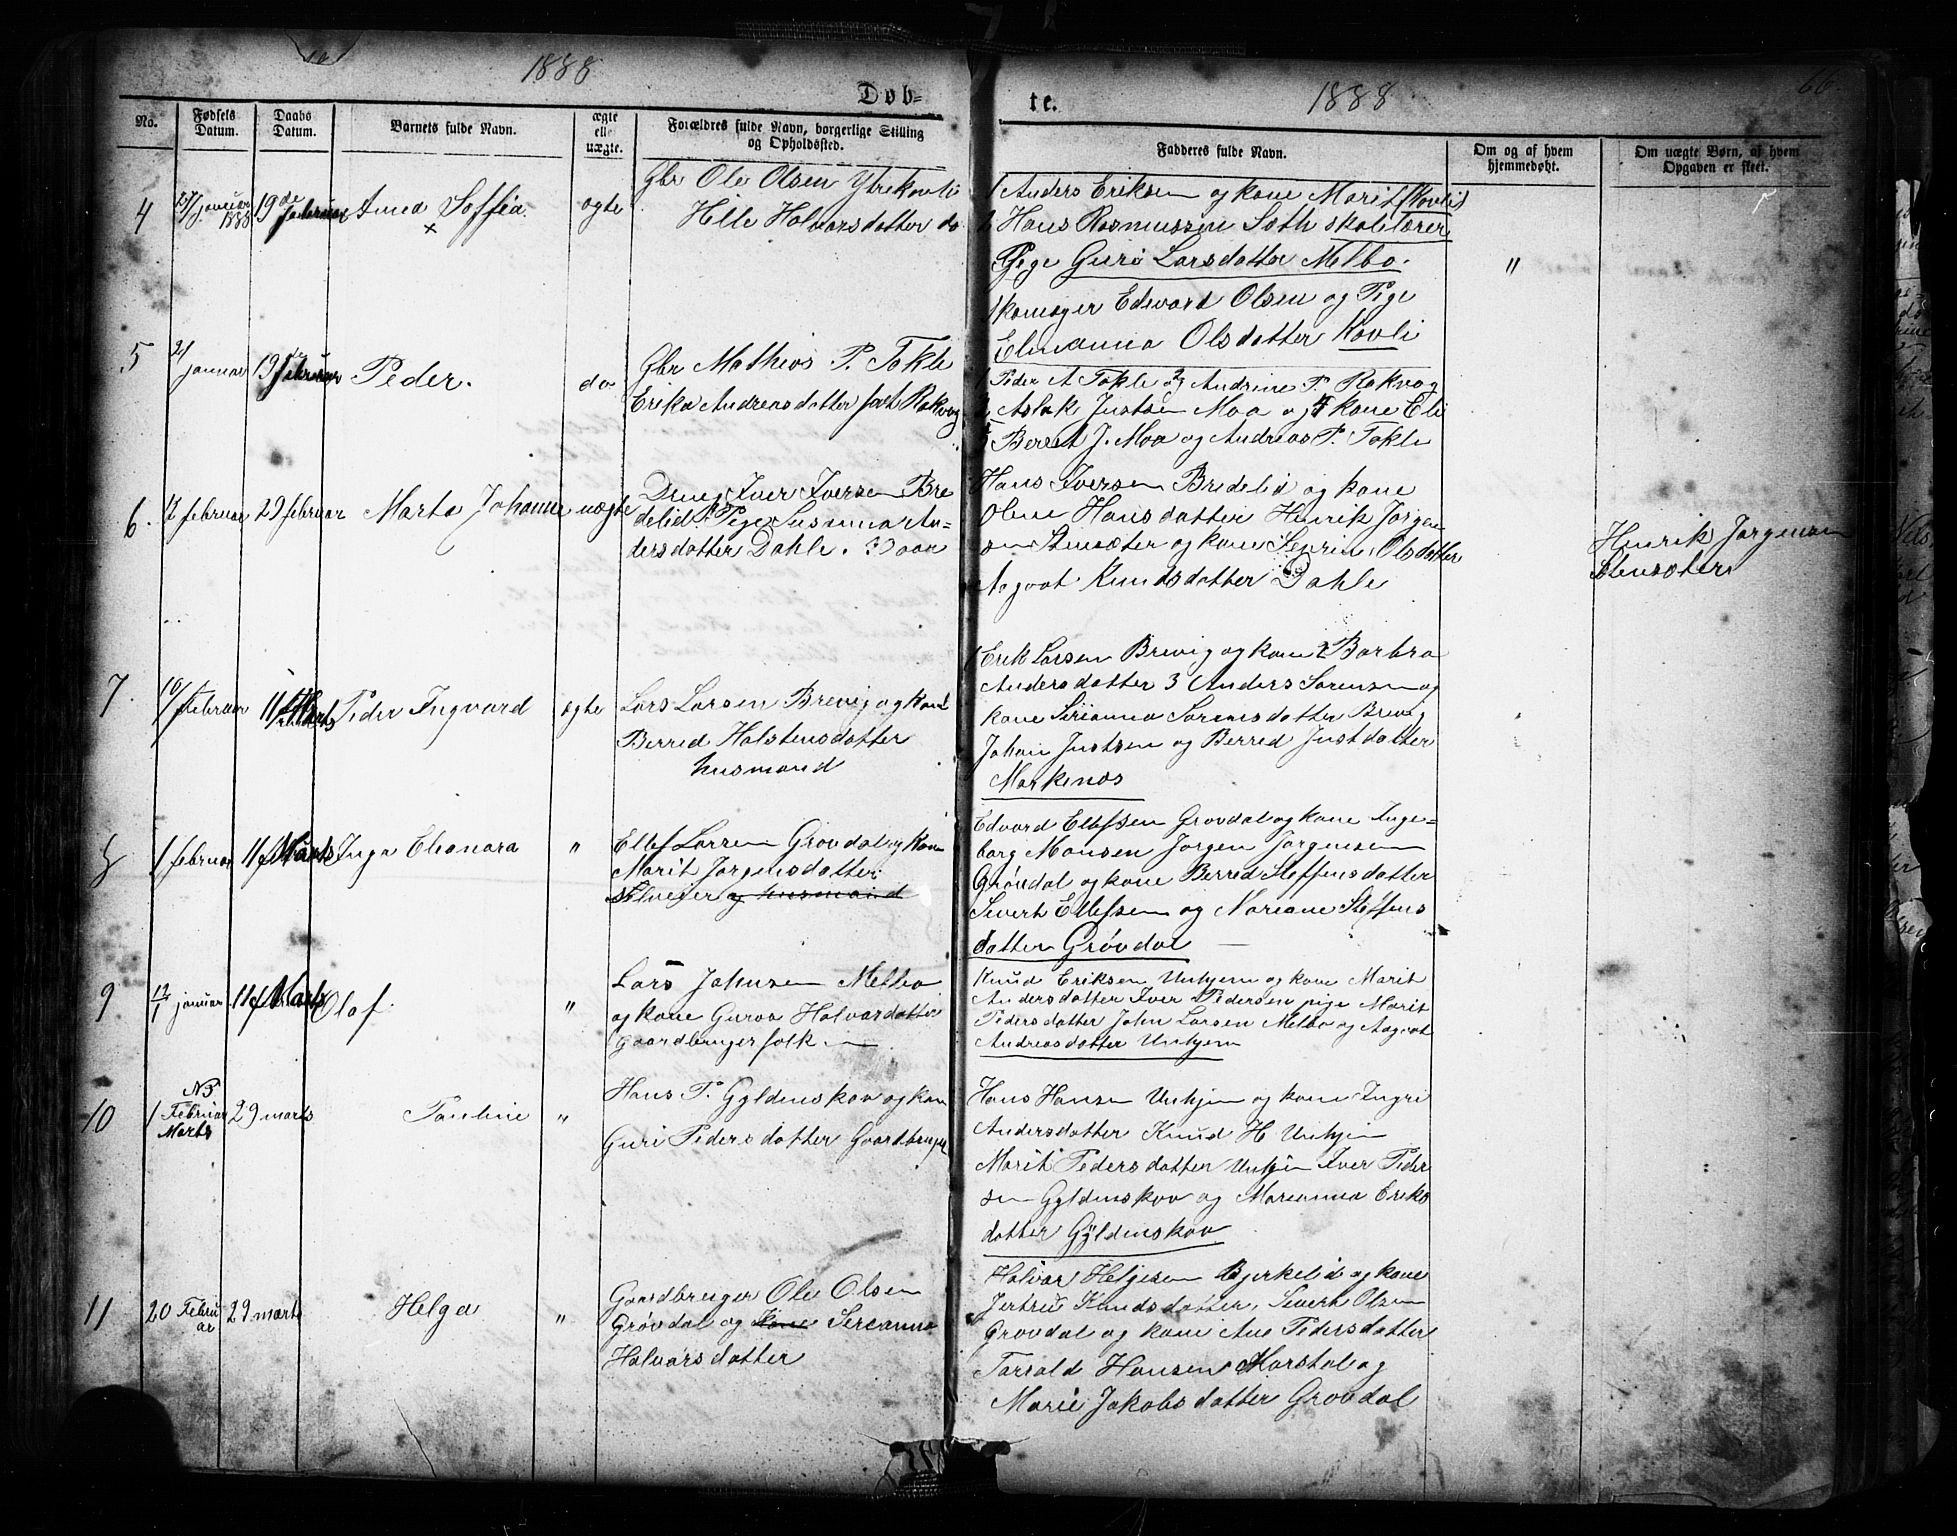 1888
Døb-
te.
1888
66.
No.
Fødsels Datum.
Daabs Datum.
Barnets fulde Navn.
ægte eller uægte.
Forældres fulde Navn, borgerlige Stilling og Opholdssted.
Fadderes fulde Navn.
Om og af hvem hjemmedøbt.
Om uægte Børn, af hvem Opgaven er skeet.
4
januar 1888
19de februar
Anna Soffia
ægte
Gbr Ole Olsen Ytrekovli
Halvarsdatter do
Anders Eriksen og kone Marit (Kovli)
Hans Rasmussen Soth skolelærer
Pige Guri Larsdatter Melbo.
Edward Olsen og Pige
Olsdatter Kovli
"
5
2/ januar
19 februar
Peder.
do
Gbr Mathias P. Tokle
Erika Andreasdatter født Rakvag
Peder A Tokle og Andrine P. Rakvog
Aslak Justsen Moa og kone Eli
Berret J. Moa og Andreas P. Tokle
6.
februar
29 februar
Marta Johanne
uægte
Dreng Iver Iversen Bre
delid Pige Susanna An-
dersdatter Dahle. 30 aar
Hans Iversen Bredelid og kone
Oline Hansdatter Henrik Jørgen
sen Stensæter og kone Olsdatter
Aagaat Knudsdatter Dahle
Henrik Jørgensen
Stensæter
7.
10/ februar
11/ Marts
Peder Ingvard
ægte
Lars Larsen Brevig og kone
Berred Halstensdatter
husmand
Erik Larsen Brevig og kone 2 Barbra
Andersdatter 3 Anders Sørensen og
kone Serianna Sørensdatter Brevig
Johan Justsen og Berred Justdatter
Markenæs
8
1 februar
11 Marts
Inga Eleonora
"
Ellef Larsen Grøvdal og kone
Marit Jørgensdatter
Selveier og husmand
Edvard Ellefsen Grøvdal og kone Inge=
borg Monsen Jørgen Jørgensen
Grøvdal og kone Berred Steffensdatter
Sivert Ellefsen og Mariane Steffens
datter Grøvdal
9
12/1 januar
11 Marts
Olaf
"
Lars Johnsen Melbo
og kone Guroa Halvardatter
Gaardbrugerfolk
Knud Eriksen Unhjem og kone Marit
Andersdatter Iver Pedersen pige Marit
Pedersdatter John Larsen Melbo og Aagaat
Andreasdatter Unhjem
10
NB
1 Februar
Marts
29 marts
Pauline
"
Hans P. Gyldenskov og kone
Guri Pedersdatter Gaardbruger
Hans Hansen Unhjem og kone Ingri
Andersdatter Knud H Unhjem
Marit Pedersdatter Unhjem Iver Peder
sen Gyldenskov og Marianna Eriks
datter Gyldenskov
11
20 Febru
ar
29 marts
Helga
"
Gaardbruger Ole Olsen
Grøvdal og kone Serianna
Halvarsdatter
Halvar Helgesen Bjerkelid og kone
Jertru Knudsdatter, Sivert Olsen
Grøvdal og kone Ane Pedersdatter
Torvald Hansen Marstal og
Marie Jakobsdatter Grøvdal